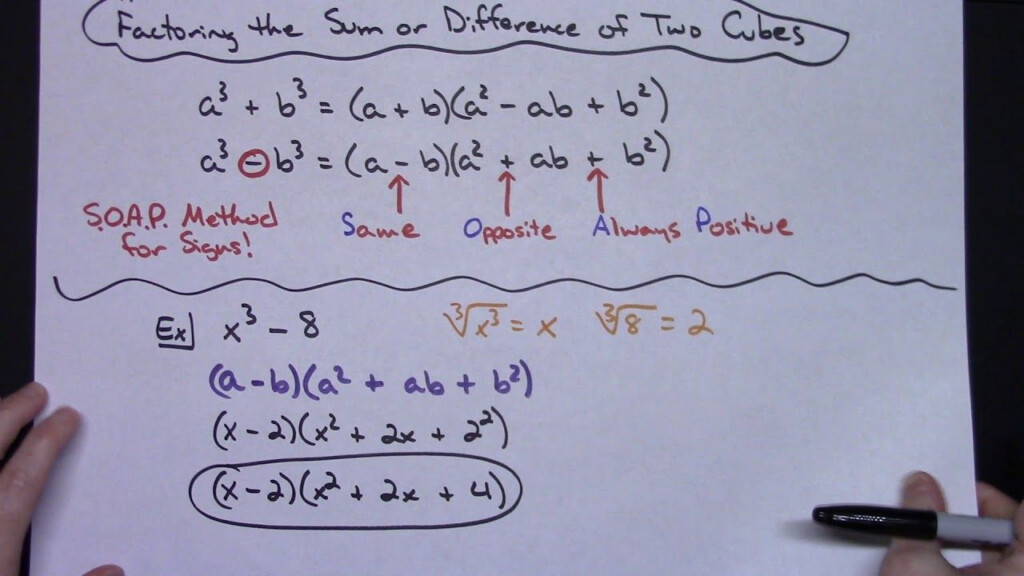 Factoring the Sum or Difference of Two Cubes
a³ + b³ = (a + b)(a² - ab + b²)
a³ - b³ = (a - b)(a² + ab + b²)
S.O.A.P. Method for Signs!
Same Opposite Always Positive
Ex x³ - 8 ∛x³ = x ∛8 = 2
(a - b)(a² + ab + b²)
(x - 2)(x² + 2x + 2²)
(x - 2)(x² + 2x + 4)